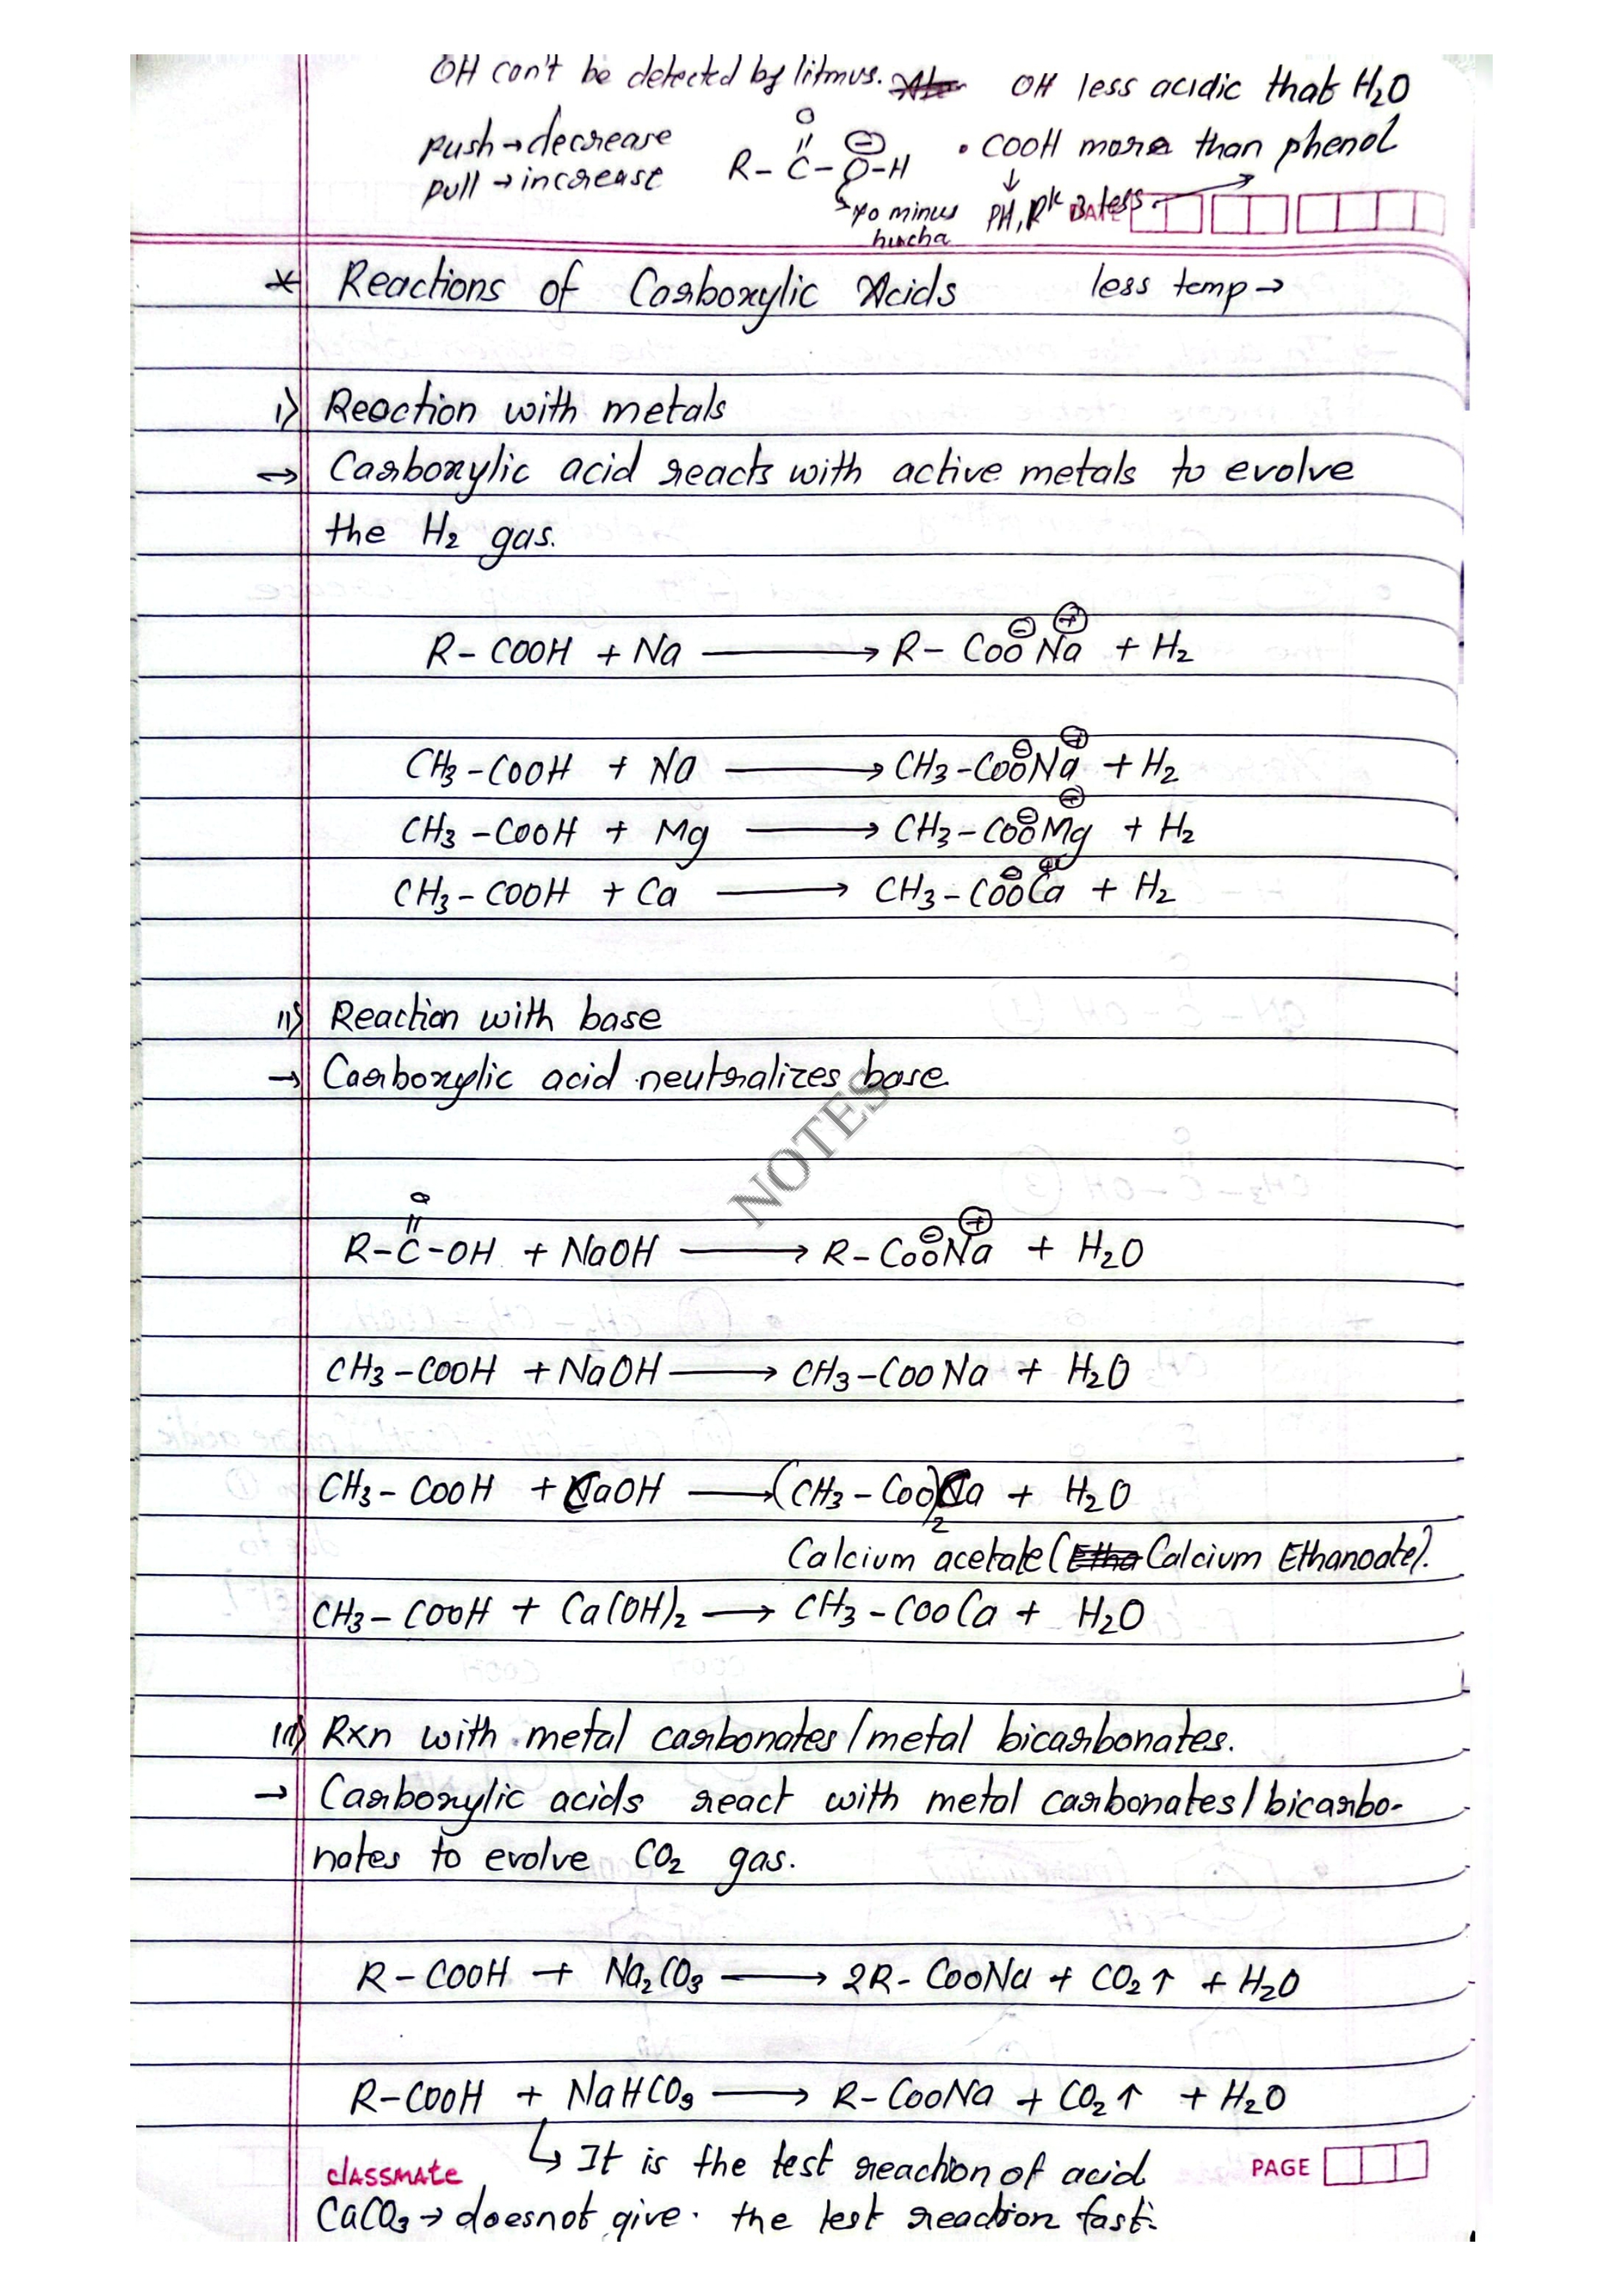 OH can't be detected by litmus. OH less acidic that H₂O
push → decrease
pull → increase
O
R – C – O – H
• COOH more than phenol
↓
→ yo minus
huncha
PH, Pᵏ is less
DATE
* Reactions of Carboxylic Acids less temp →
i) Reaction with metals
→ Carboxylic acid reacts with active metals to evolve
the H₂ gas.
R – COOH + Na ⟶ R – COO⊖Na⊕ + H₂
CH₃ – COOH + Na ⟶ CH₃ – COO⊖Na⊕ + H₂
CH₃ – COOH + Mg ⟶ CH₃ – COO⊖Mg⊕ + H₂
CH₃ – COOH + Ca ⟶ CH₃ – COO⊖Ca⊕ + H₂
ii) Reaction with base
→ Carboxylic acid neutralizes base.
NOTES
O
R – C – OH + NaOH ⟶ R – COO⊖Na⊕ + H₂O
CH₃ – COOH + NaOH ⟶ CH₃ – COONa + H₂O
CH₃ – COOH + CaOH ⟶ (CH₃ – COO)₂Ca + H₂O
Calcium acetate (Calcium Ethanoate).
CH₃ – COOH + Ca(OH)₂ ⟶ CH₃ – COOCa + H₂O
iii) Rxn with metal carbonates/metal bicarbonates.
→ Carboxylic acids react with metal carbonates/bicarbo-
nates to evolve CO₂ gas.
R – COOH + Na₂CO₃ ⟶ 2R – COONa + CO₂↑ + H₂O
R – COOH + NaHCO₃ ⟶ R – COONa + CO₂↑ + H₂O
↳ It is the test reaction of acid
classmate
PAGE
CaCO₃ → doesnot give the test reaction fast.